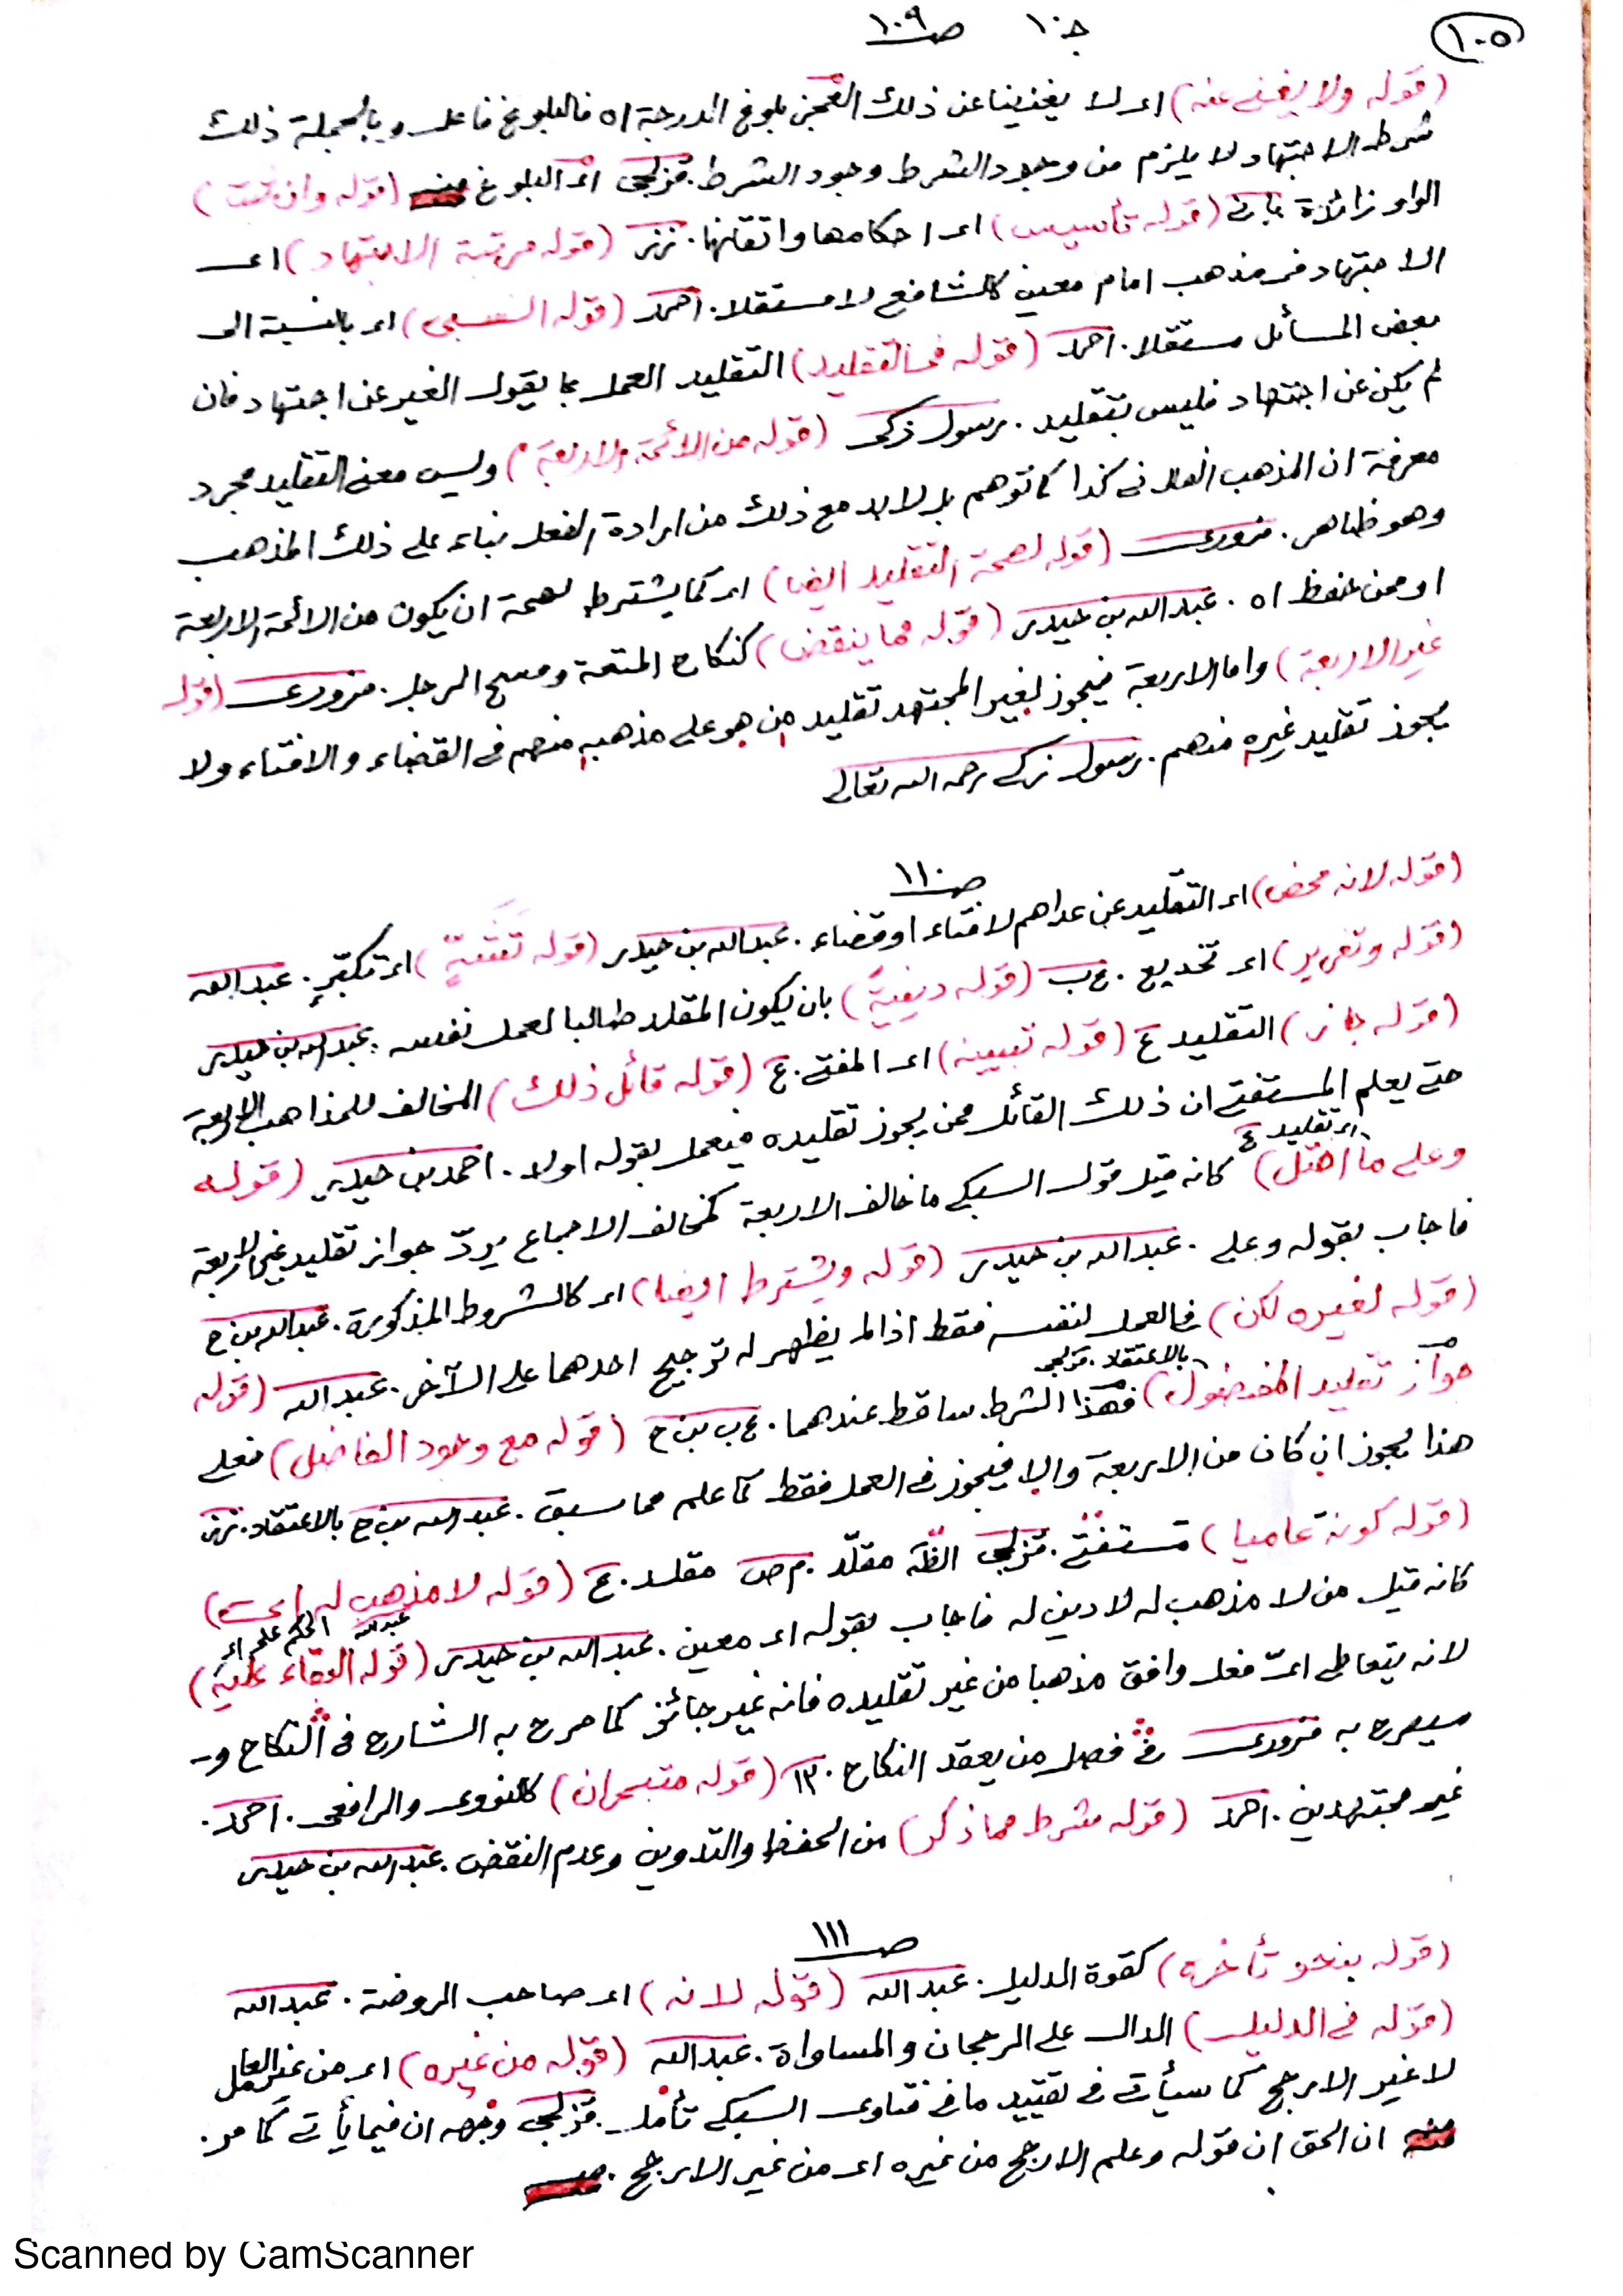 ١٠٥
جـ١٠ صـ١٠٩
(قوله ولا يغني عنه) اى لا يغنينا عن ذلك العجز بلوغ الدرجة اه فالبلوغ فاعل وبالجملة ذلك
شرط الاجتهاد لا يلزم من وجود الشرط وجود المشرط. قزلجى اى البلوغ منه (قوله وان ثبتت)
الواو زائدة (قوله تأسيس) اى احكامها واتقانها. نزز (قوله مرتبة الاجتهاد) اى
الاجتهاد فى مذهب امام معين كالشافعى لا مستقلا. احمد (قوله النسبى) اى بالنسبة الى
بعض المسائل مستقلا. احمد (قوله فى التقليد) التقليد العمل بما يقول الغير عن اجتهاد فان
لم يكن عن اجتهاد فليس بتقليد. رسول زكى (قوله من الائمة الاربعة) وليس معنى التقليد مجرد
معرفة ان المذهب الفلانى كذا كما توهم بل لابد مع ذلك من ارادة الفعل بناء على ذلك المذهب
وهو ظاهر. مزورى (قوله لصحة التقليد ايضا) اى كما يشترط لصحة ان يكون من الائمة الاربعة
او ممن حفظ اه. عبد الله بن حيدر (قوله مما ينقض) كنكاح المتعة ومسح الرجل. مزورى (قوله
غير الاربعة) واما الاربعة فيجوز لغير المجتهد تقليد من هو على مذهبه منهم فى القضاء والافتاء ولا
يجوز تقليد غيره منهم. رسول زكى رحمه الله تعالى
صـ١١٠
(قوله لانه محض) اى التقليد عن عداهم لافتاء او قضاء. عبد الله بن حيدر (قوله تفتنة) اى تكبر. عبد الله
(قوله وتغرير) اى تخديع. ع ب (قوله دينية) بان يكون المقلد طالبا لعمل نفسه. عبد الله بن حيدر
(قوله جائز) التقليد ع (قوله تبيينه) اى المفتى. ع (قوله قائل ذلك) المخالف للمذاهب الاربعة
حتى يعلم المستفتى ان ذلك القائل ممن يجوز تقليده فيعمل بقوله اولا. احمد بن حيدر (قوله
اى تقليد ع
وعلى ما اختل) كانه قيل قول السبكى ما خالف الاربعة كمخالف الاجماع يردّ جواز تقليد غير الاربعة
فاجاب بقوله وعلى. عبد الله بن حيدر (قوله ويشترط ايضا) اى كالشروط المذكورة. عبد الله بن ح
(قوله لغيره لكن) فى العمل لنفسه فقط اذا لم يظهر له ترجيح احدهما على الآخر. عبد الله (قوله
بالاعتقاد. قزلجى
جواز تقليد المفضول) فهذا الشرط ساقط عندهما. ع ب بن ح (قوله مع وجود الفاضل) فعلى
هذا يجوز ان كان من الاربعة والا فيجوز فى العمل فقط كما علم مما سبق. عبد الله بن ح بالاعتقاد. نزز
(قوله كونه عاميا) مستفتى. قزلجى مقلّد م ص مقلد. ع (قوله لا مذهب له)
كانه قيل من لا مذهب له لا دين له فاجاب بقوله اى معين. عبد الله بن حيدر (قوله البقاء عليه)
الحكم على اى عبد الله
لانه يتعاطى اىّ فعل وافق مذهبا من غير تقليده فانه غير جائز كما صرح به الشارح فى النكاح و
سيصرح به مزورى فى فصل من يعقد النكاح. (قوله متبحران) كالنووى والرافعى. احمد.
غير مجتهدين. احمد (قوله بشرط مما ذكر) من الحفظ والتدوين وعدم النقض. عبد الله بن حيدر
صـ١١١
(قوله بنحو تأخره) كقوة الدليل. عبد الله (قوله لانه) اى صاحب الروضة. عبد الله
(قوله فى الدليل) الدال على الرجحان والمساواة. عبد الله (قوله من غيره) اى من غير العامل
لا غير الارجح كما سيأتى فى تقييد ما فى فتاوى السبكى تأمل. قزلجى وجهه ان فيما يأتى كما مر.
منه ان الحق ان قوله وعلم الارجح من غيره اى من غير الارجح. منه
Scanned by CamScanner